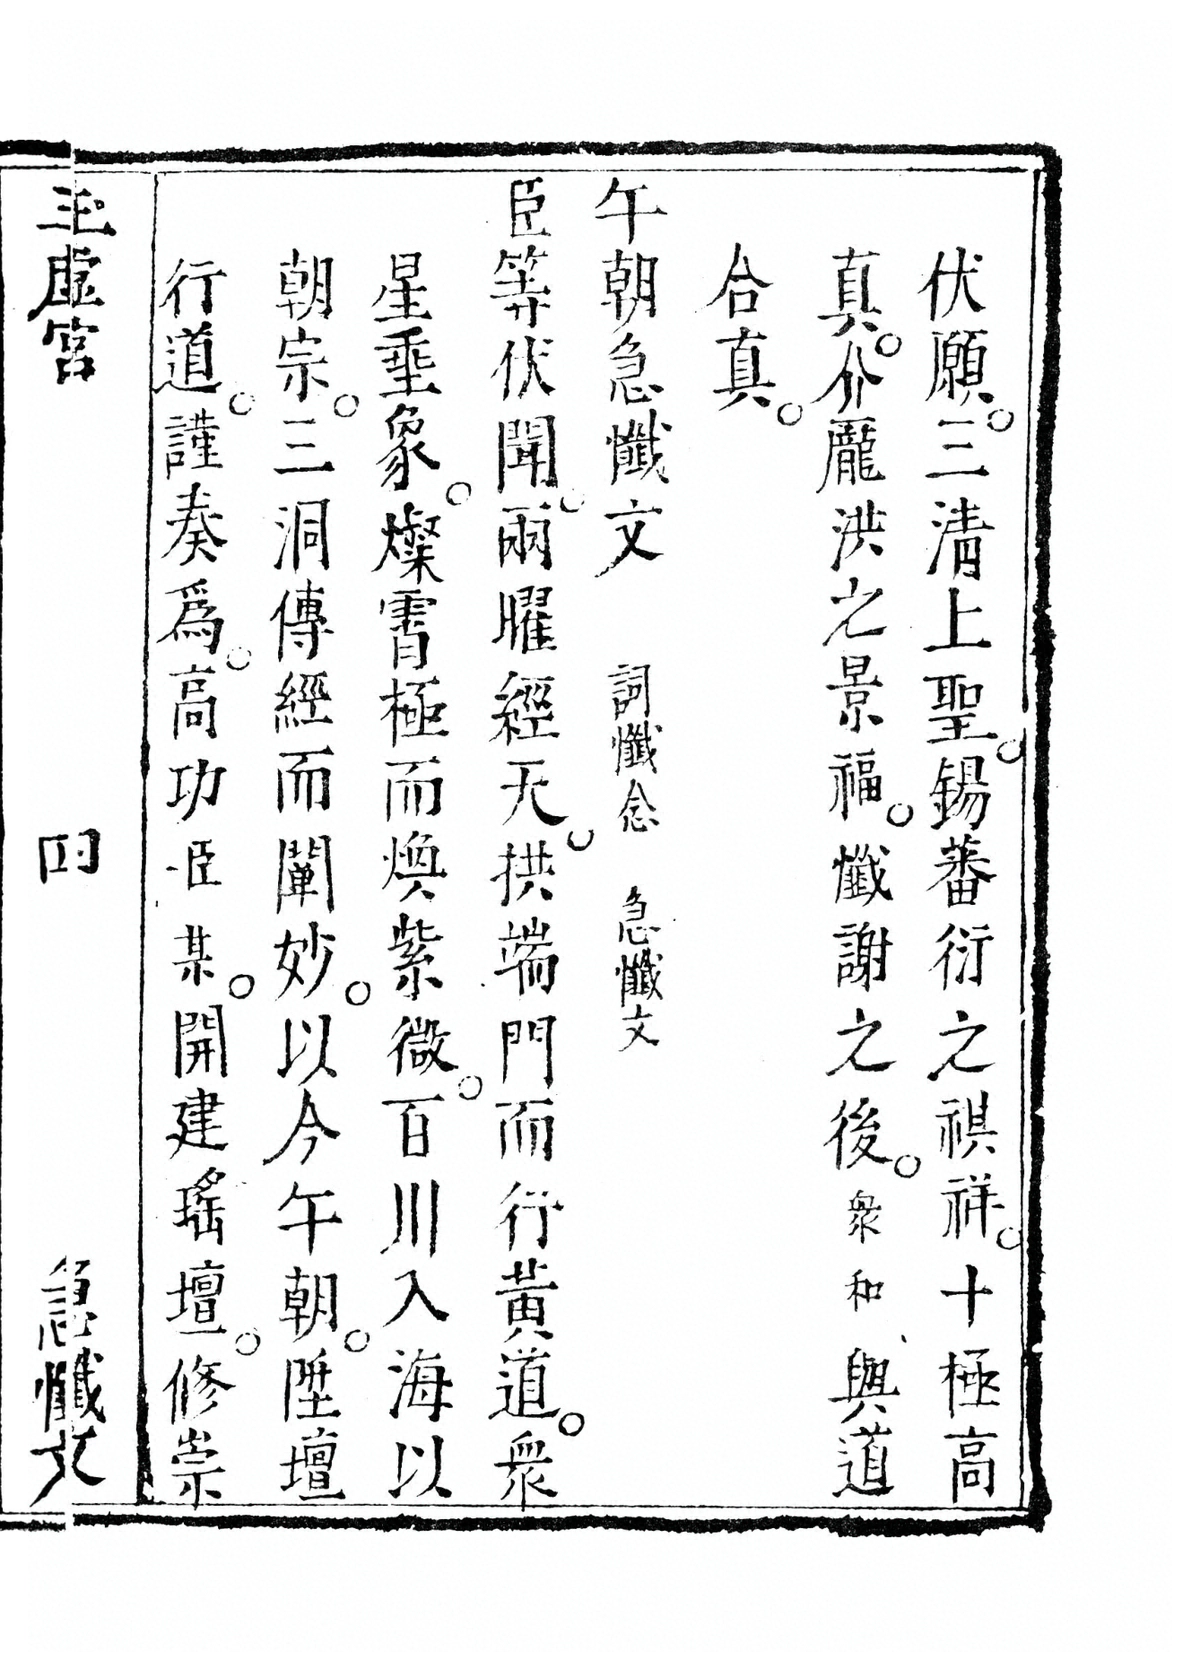 伏願。三清上聖。錫蕃衍之祺祥。十極高
真。介龐洪之景福。懺謝之後。衆和與道
合真。
午朝急懺文 詞懺念 急懺文
臣等伏聞。兩曜經天。拱端門而行黃道。衆
星垂象。燦霄極而煥紫微。百川入海以
朝宗。三洞傳經而闡妙。以今午朝。陞壇
行道。謹奏為。高功臣某。開建瑤壇。修崇
玉虛宮 四 急懺文